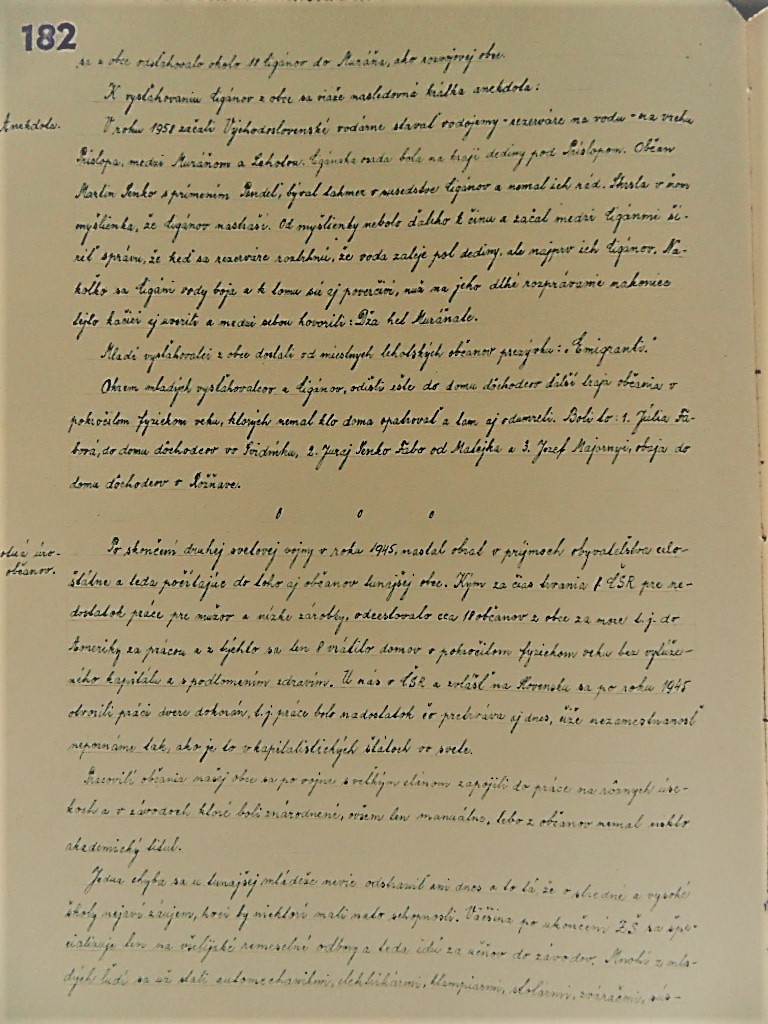 182
sa z obce odsťahovalo okolo 18 Cigánov do Muráňa, ako rozvojovej obce.
K vysťahovaniu Cigánov z obce sa viaže nasledovná krátka anekdota:
Anekdota.
V roku 1958 začali Východoslovenské vodárne stavať vodojemy - rezerváre na vodu - na vrchu
Príslopa, medzi Muráňom a Lehotou. Cigánska osada bola na kraji dediny pod Príslopom. Občan
Martin Penko s prímením Pendel, býval takmer v susedstve Cigánov a nemal ich rád. Skrsla v ňom
myšlienka, že Cigánov nastraší. Od myšlienky nebolo ďaleko k činu a začal medzi Cigánmi ší-
riť správu, že keď sa rezerváre roztrhnú, že voda zaleje pol dediny, ale najprv ich Cigánov. Na-
koľko sa Cigáni vody boja a k tomu sú aj poverčiví, nuž na jeho dlhé rozprávanie nakoniec
tejto kačici aj uverili a medzi sebou hovorili: Dža het Muráňate.
Mladí vysťahovalci z obce dostali od miestnych lehotských občanov prezývku: „Emigranti."
Okrem mladých vysťahovalcov a Cigánov, odišli ešte do domu dôchodcov ďalší traja občania v
pokročilom fyzickom veku, ktorých nemal kto doma opatrovať a tam aj odumreli. Boli to: 1. Júlia Fá-
bová, do domu dôchodcov vo Svidníku, 2. Juraj Penko Fábo od Matejka a 3. Jozef Majornyi, obaja do
domu dôchodcov v Rožňave.
o o o
občanov.
Po skončení druhej svetovej vojny v roku 1945, nastal obrat v príjmoch obyvateľstva celo-
štátne a teda počítajúc do toho aj občanov tunajšej obce. Kým za čias trvania I. ČSR pre ne-
dostatok práce pre mužov a nízke zárobky, odcestovalo cca 18 občanov z obce za more t.j. do
Ameriky za prácou a z týchto sa len 8 vrátilo domov v pokročilom fyzickom veku bez vytúže-
ného kapitálu a s podlomeným zdravím. U nás v ČSR a zvlášť na Slovensku sa po roku 1945
otvorili práci dvere dokorán, t.j. práce bolo nadostatok čo pretrváva aj dnes, čiže nezamestnanosť
nepoznáme tak, ako je to v kapitalistických štátoch vo svete.
Pracovití občania našej obce sa po vojne s veľkým elánom zapojili do práce na rôznych úse-
koch a v závodoch ktoré boli znárodnené, ovšem len manuálne, lebo z občanov nemal nikto
akademický titul.
Jedna chyba sa u tunajšej mládeže nevie odstrániť ani dnes a to tá že o stredné a vysoké
školy nejaví záujem, hoci by niektorí mali nato schopnosti. Väčšina po ukončení ZŠ sa špe-
cializuje len na všelijaké remeselné odbory a teda idú za učňov do závodov. Mnohí z mla-
dých ľudí sa už stali automechanikmi, elektrikármi, klampiarmi, stolármi, zváračmi, sús-